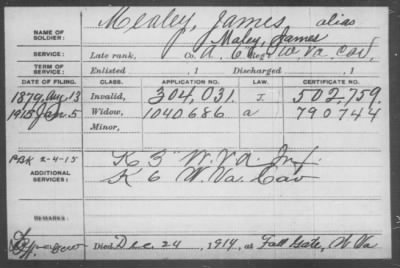 Mealey, James, alias
NAME OF SOLDIER: Maley, James
SERVICE: Late rank, Co. A, 6 Reg't W. Va. Cav.
TERM OF SERVICE: Enlisted , 1 Discharged , 1
DATE OF FILING. CLASS. APPLICATION NO. LAW. CERTIFICATE NO.
1879, Aug 13 Invalid, 304,031. J. 502,759.
1915 Jan. 5 Widow, 1040686 a 790744
Minor,
PBK 2-4-15
ADDITIONAL SERVICES: K 3" W. VA. Inf.
K 6 W. Va. Cav
REMARKS:
Died Dec. 24, 1914, at Fall Gate, W Va